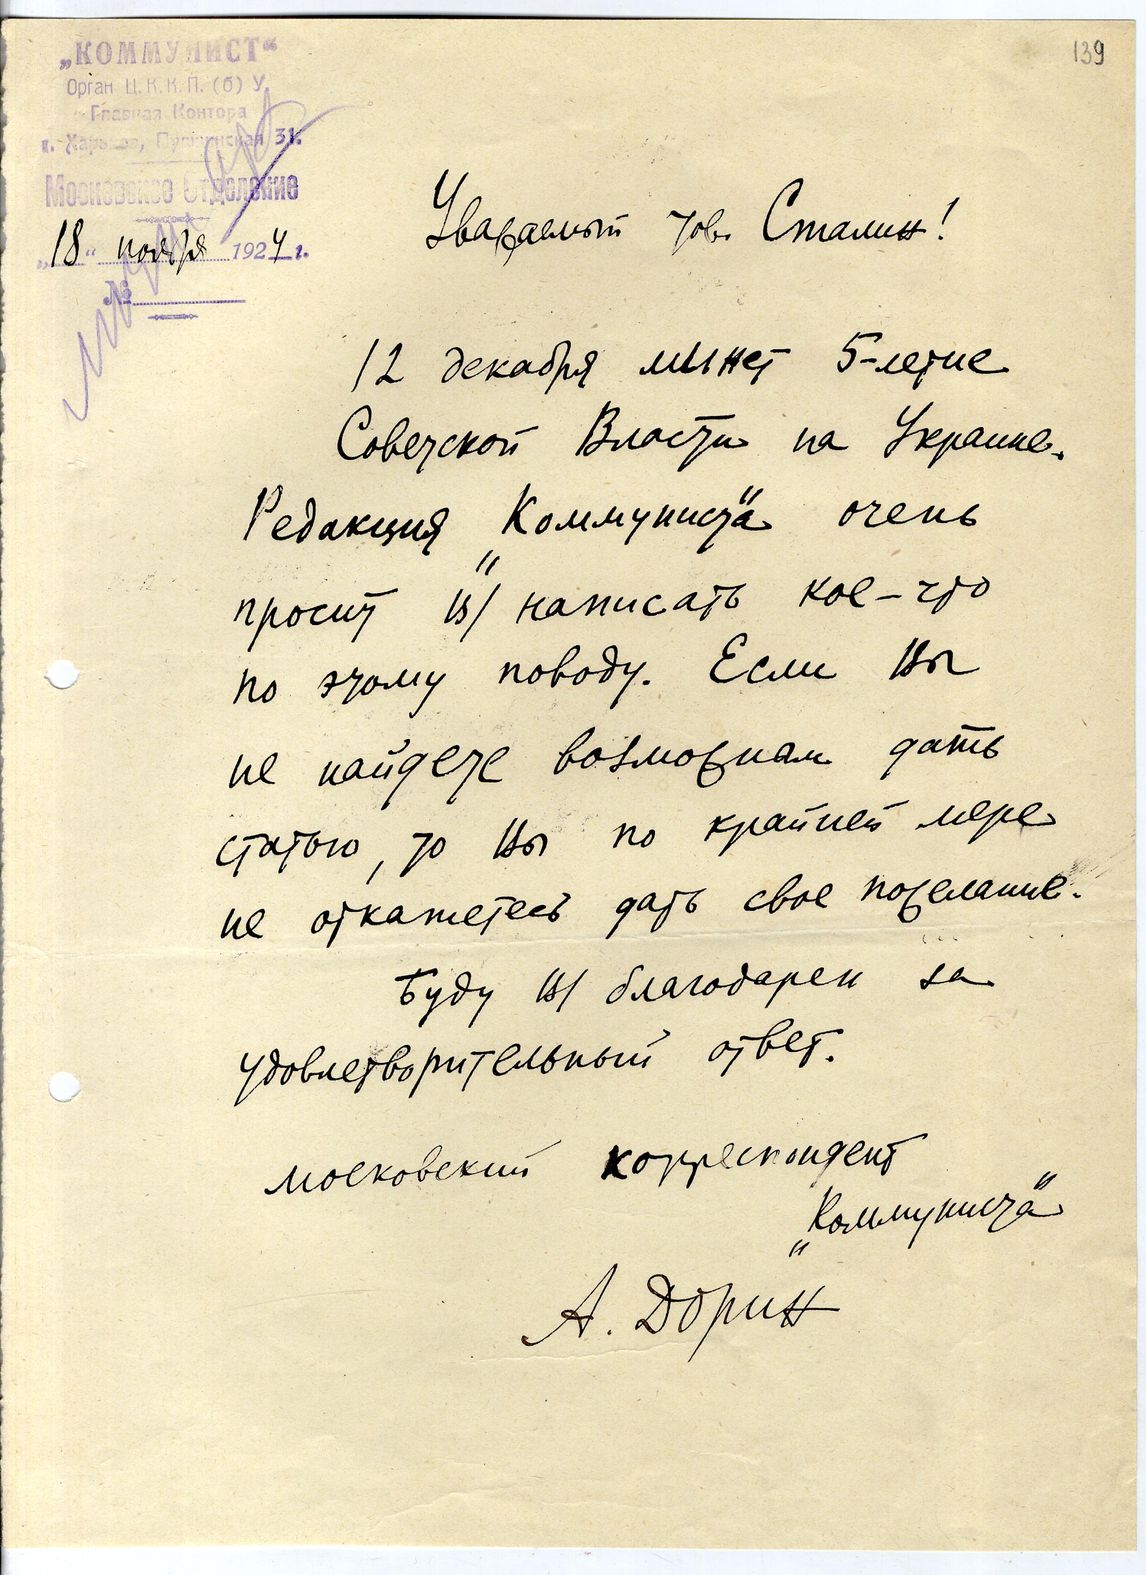 139
„КОММУНИСТ“
Орган Ц. К. К. П. (б) У.
Главная Контора
г. Харьков, Пушкинская 31.
Московское Отделение
„18“ ноября 1924 г.
№
Уважаемый тов. Сталин!
12 декабря минет 5-летие
Советской Власти на Украине.
Редакция „Коммуниста“ очень
просит В/ написать кое-что
по этому поводу. Если Вы
не найдете возможным дать
статью, то Вы по крайней мере
не откажетесь дать свое пожелание.
Буду В/ благодарен за
удовлетворительный ответ.
московский корреспондент
„Коммуниста“
А. Дорин